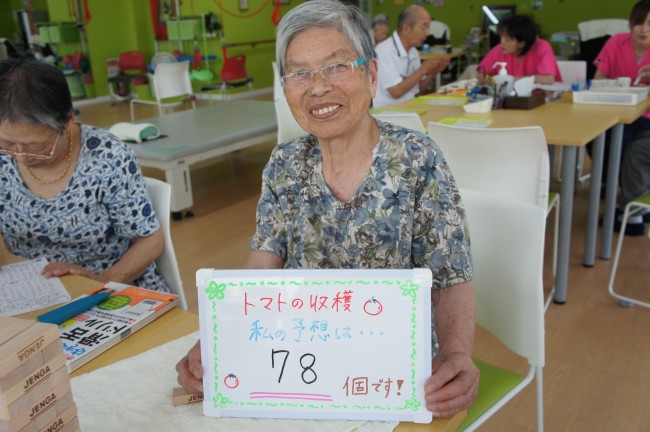 トマトの収穫
私の予想は・・・
78
個です!
滑舌
ドリル
JENGA
JENGA
JENGA
JENGA